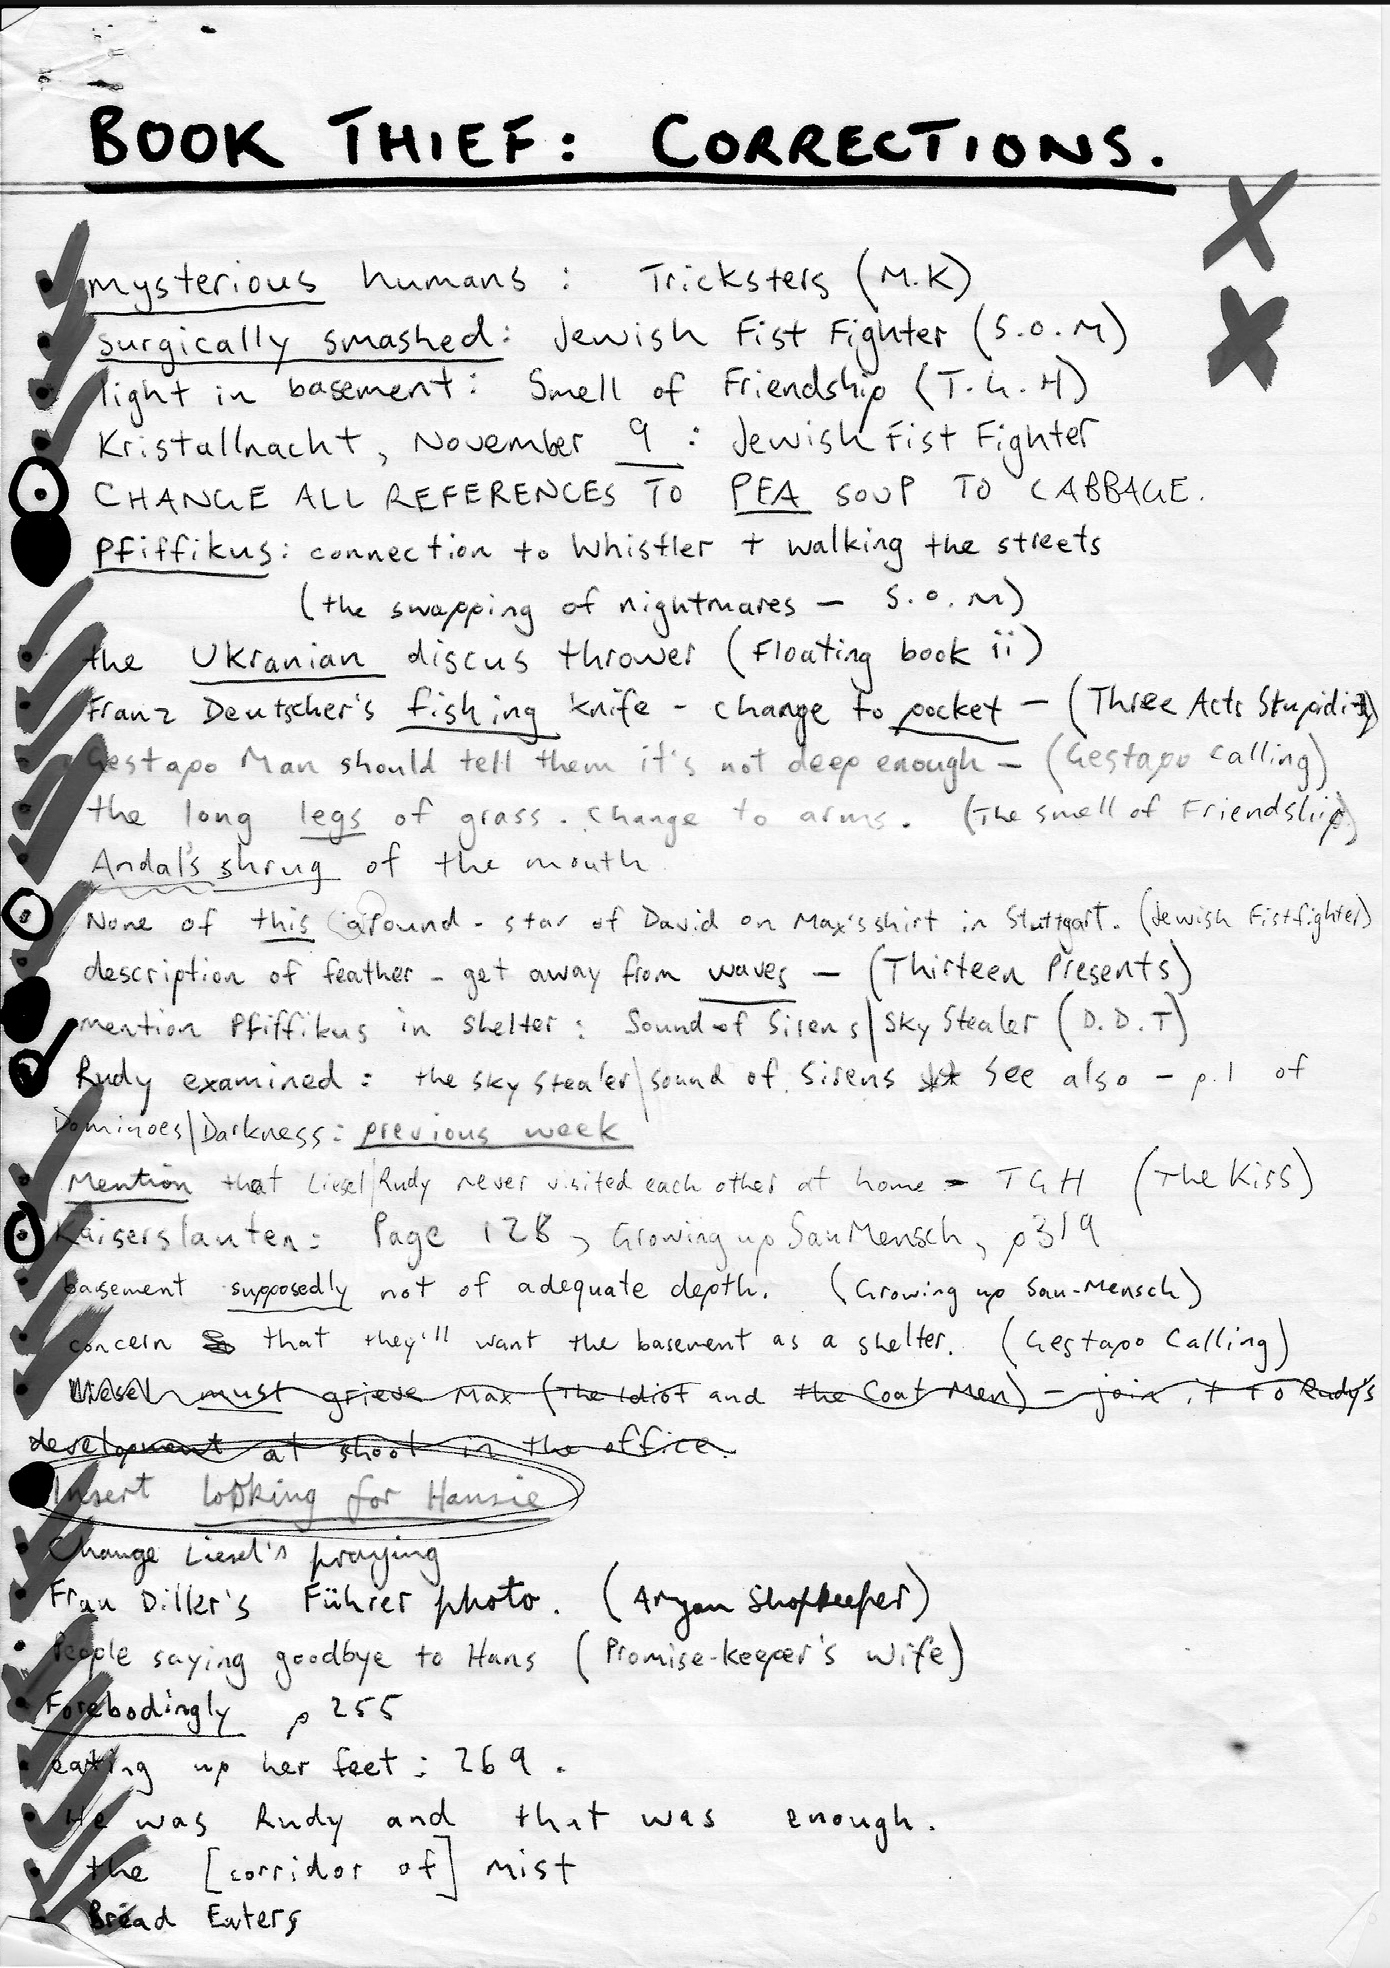 BOOK THIEF: CORRECTIONS.
mysterious humans: Tricksters (M.K)
surgically smashed: Jewish Fist Fighter (S.O.M)
light in basement: Smell of Friendship (T.G.H)
Kristallnacht, November 9: Jewish Fist Fighter
CHANGE ALL REFERENCES TO PEA SOUP TO CABBAGE.
Pfiffikus: connection to Whistler + walking the streets
(the swapping of nightmares - S.O.M)
the Ukranian discus thrower (Floating book ii)
Franz Deutscher's fishing knife - change to pocket - (Three Acts Stupidity)
Gestapo Man should tell them it's not deep enough - (Gestapo Calling)
the long legs of grass. Change to arms. (The smell of Friendship)
Andal's shrug of the mouth
None of this around - star of David on Max's shirt in Stuttgart. (Jewish Fistfighter)
description of feather - get away from waves - (Thirteen Presents)
mention Pfiffikus in shelter: Sound of Sirens/Sky Stealer (D.D.T)
Rudy examined: the sky stealer/sound of Sirens See also - p.1 of
Dominoes/Darkness: previous week
Mention that Liesel/Rudy never visited each other at home - TGH (The Kiss)
Kaiserslauten: Page 128, Growing up SauMensch, p319
basement supposedly not of adequate depth. (Growing up Sau-Mensch)
concern that they'll want the basement as a shelter. (Gestapo Calling)
Liesel must grieve Max (The Idiot and the Coat Men) - join it to Rudy's
development at shool in the office.
Insert looking for Hansie
Change Liesel's praying
Frau Diller's Führer photo. (Aryan Shopkeeper)
People saying goodbye to Hans (Promise-keeper's wife)
Forebodingly p 255
eating up her feet: 269.
He was Rudy and that was enough.
the [corridor of] mist
Bread Eaters